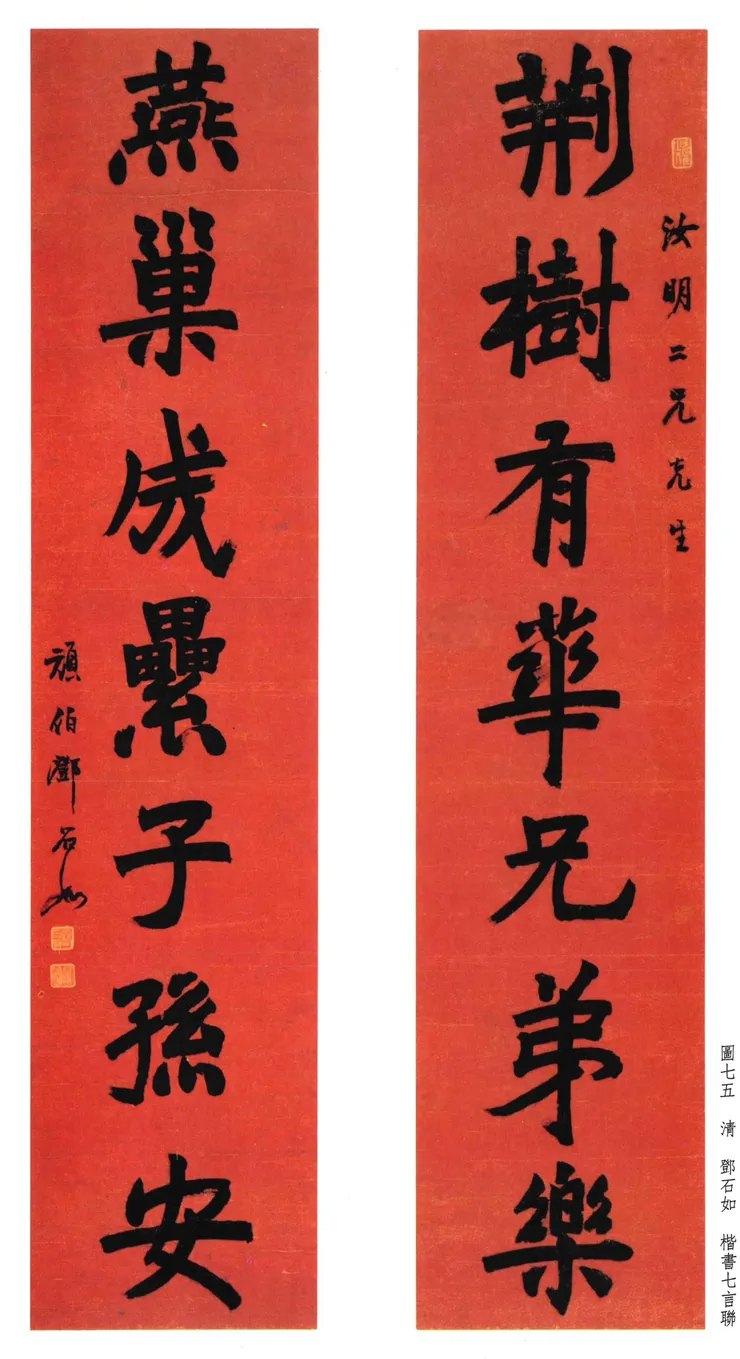 汝明二兄先生
荆樹有華兄弟樂
燕巢成纍子孫安
頑伯鄧石如
圖七五 清 鄧石如 楷書七言聯